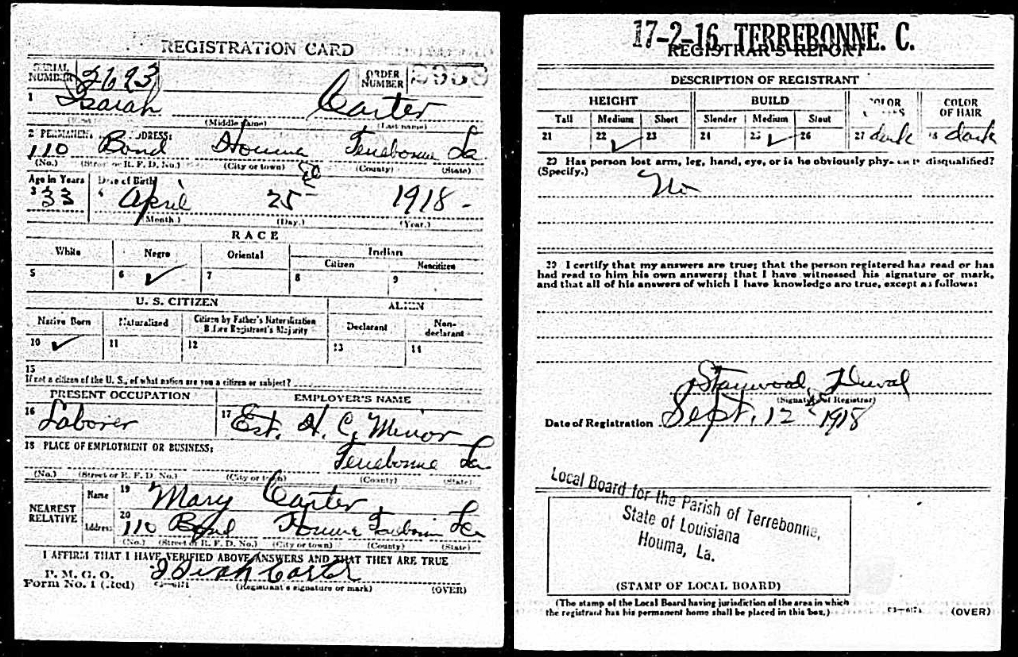 REGISTRATION CARD
SERIAL NUMBER 2693 ORDER NUMBER
1 Isaiah Carter
(Middle name) (Last name)
2 PERMANENT ADDRESS:
110 Bond Houma Terrebonne La
(No.) (Street or R. F. D. No.) (City or town) (County) (State)
Age in Years Date of Birth
3 33 4 April 25 1918 -
(Month.) (Day.) (Year.)
RACE
White Negro Oriental Indian
Citizen Noncitizen
5 6 ✓ 7 8 9
U. S. CITIZEN ALIEN
Native Born Naturalized Citizen by Father's Naturalization Before Registrant's Majority Declarant Non-declarant
10 ✓ 11 12 13 14
15
If not a citizen of the U. S., of what nation are you a citizen or subject?
PRESENT OCCUPATION EMPLOYER'S NAME
16 Laborer 17 Est. H. C. Minor
18 PLACE OF EMPLOYMENT OR BUSINESS:
Terrebonne La
(No.) (Street or R. F. D. No.) (City or town) (County) (State)
NEAREST RELATIVE
Name 19 Mary Carter
Address 20 110 Bond Houma Terrebonne La
(No.) (Street or R. F. D. No.) (City or town) (County) (State)
I AFFIRM THAT I HAVE VERIFIED ABOVE ANSWERS AND THAT THEY ARE TRUE
P. M. G. O.
Form No. 1 (Red) Isiah Carter
(Registrant's signature or mark) (OVER)
17-2-16 TERREBONNE. C.
REGISTRAR'S REPORT
DESCRIPTION OF REGISTRANT
HEIGHT BUILD COLOR OF EYES COLOR OF HAIR
Tall Medium Short Slender Medium Stout
21 22 ✓ 23 24 25 ✓ 26 27 dark 28 dark
29 Has person lost arm, leg, hand, eye, or is he obviously physically disqualified?
(Specify.) No
30 I certify that my answers are true; that the person registered has read or has
had read to him his own answers; that I have witnessed his signature or mark,
and that all of his answers of which I have knowledge are true, except as follows:
Stanwood Duval
(Signature of Registrar)
Date of Registration Sept. 12 1918
Local Board for the Parish of Terrebonne,
State of Louisiana
Houma, La.
(STAMP OF LOCAL BOARD)
(The stamp of the Local Board having jurisdiction of the area in which
the registrant has his permanent home shall be placed in this box.) (OVER)